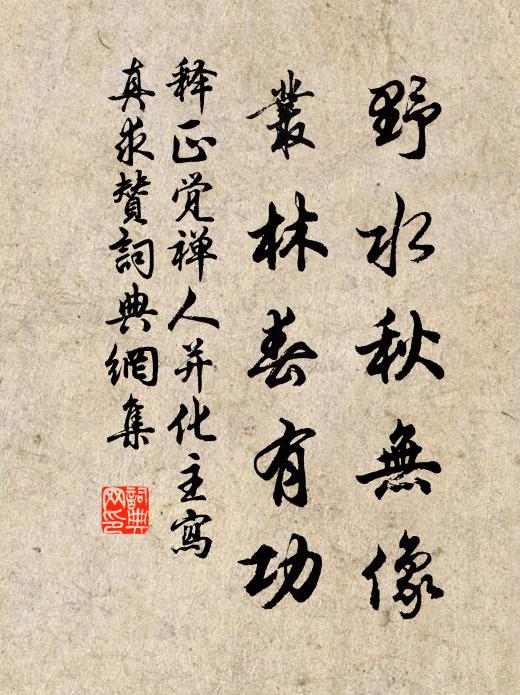 野水秋無像
叢林春有功
释正觉禅人并化主寫
真求贊詞典網集
詞典网印